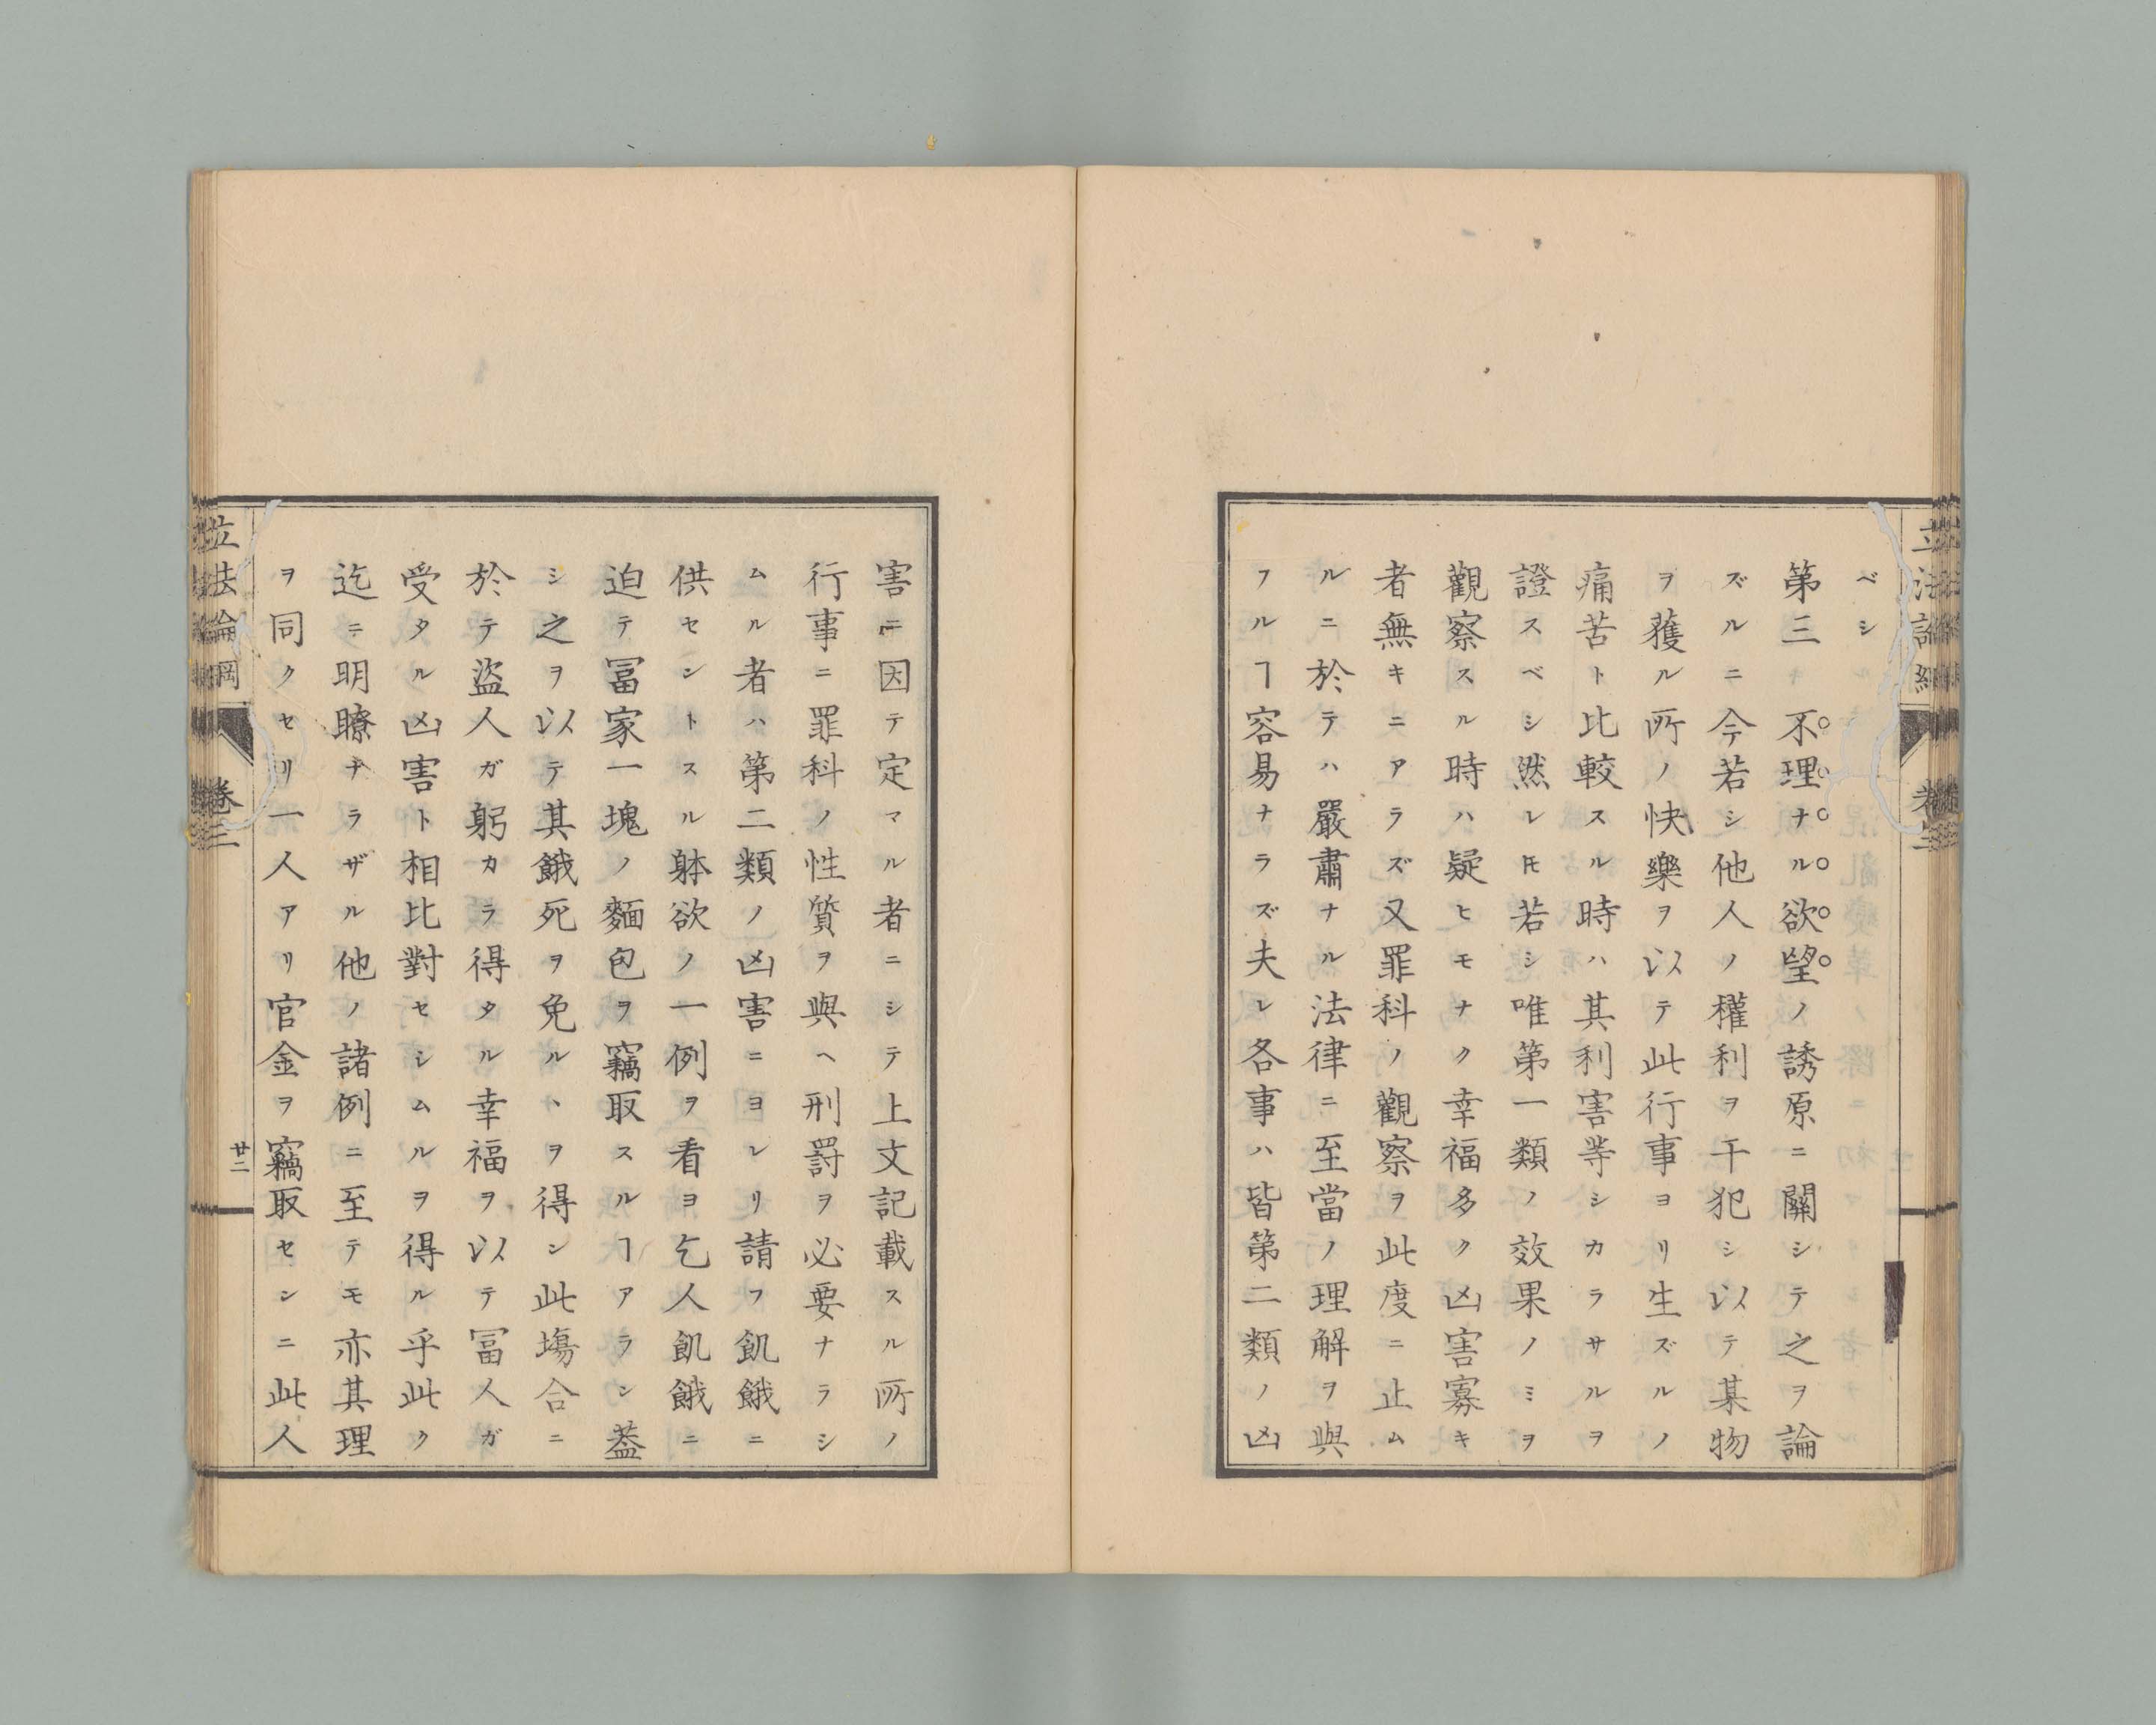 ベシ
第三 不理ナル欲望ノ誘原ニ關シテ之ヲ論
ズルニ今若シ他人ノ權利ヲ干犯シ以テ某物
ヲ獲ル所ノ快樂ヲ以テ此行事ヨリ生ズルノ
痛苦ト比較スル時ハ其利害等シカラサルヲ
證スベシ然レ𪜈若シ唯第一類ノ效果ノミヲ
觀察スル時ハ疑ヒモナク幸福多ク凶害寡キ
者無キニアラズ又罪科ノ觀察ヲ此度ニ止ム
ルニ於テハ嚴肅ナル法律ニ至當ノ理解ヲ與
フルヿ容易ナラズ夫レ各事ハ皆第二類ノ凶
害ニ因テ定マル者ニシテ上文記載スル所ノ
行事ニ罪科ノ性質ヲ與ヘ刑罰ヲ必要ナラシ
ムル者ハ第二類ノ凶害ニヨレリ請フ飢餓ニ
供セントスル躰欲ノ一例ヲ看ヨ乞人飢餓ニ
迫テ冨家一塊ノ麵包ヲ竊取スルヿアラン葢
シ之ヲ以テ其餓死ヲ免ルヽヲ得ン此塲合ニ
於テ盜人ガ躬カラ得タル幸福ヲ以テ冨人ガ
受タル凶害ト相比對セシムルヲ得ル乎此ク
迄ニ明瞭ナラザル他ノ諸例ニ至テモ亦其理
ヲ同クセリ一人アリ官金ヲ竊取センニ此人
立法論綱 卷三
廿二